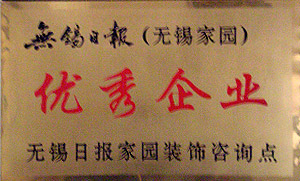 無锡日報(无锡家园)
优秀企业
无锡日报家园装饰咨询点